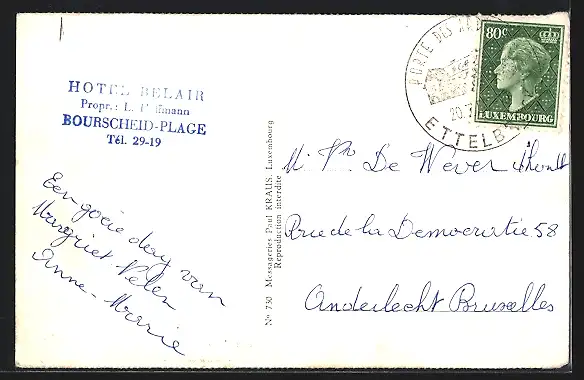 HOTEL BELAIR
Propr.: L.
BOURSCHEID-PLAGE
Tél. 29-19
Een goeie dag van
Margriet
Anne-Marie
No 730 Messageries Paul KRAUS, Luxembourg
Reproduction interdite
PORTE DES
20.7
ETTELB
80c
LUXEMBOURG
De Wever
Rue de la Democratie 58
Anderlecht Bruxelles